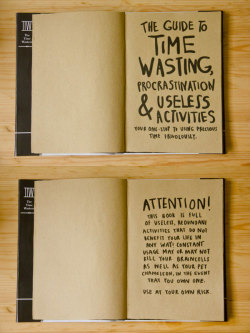 THE GUIDE TO
TIME
WASTING,
PROCRASTINATION
& USELESS
ACTIVITIES
YOUR ONE-STOP TO USING PRECIOUS
TIME FRIVOLOUSLY.
ATTENTION!
THIS BOOK IS FULL
OF USELESS, REDUNDANT
ACTIVITIES THAT DO NOT
BENEFIT YOUR LIFE IN
ANY WAY! CONSTANT
USAGE MAY OR MAY NOT
KILL YOUR BRAINCELLS
AS WELL AS YOUR PET
CHAMELEON, IN THE EVENT
THAT YOU OWN ONE.
USE AT YOUR OWN RISK.